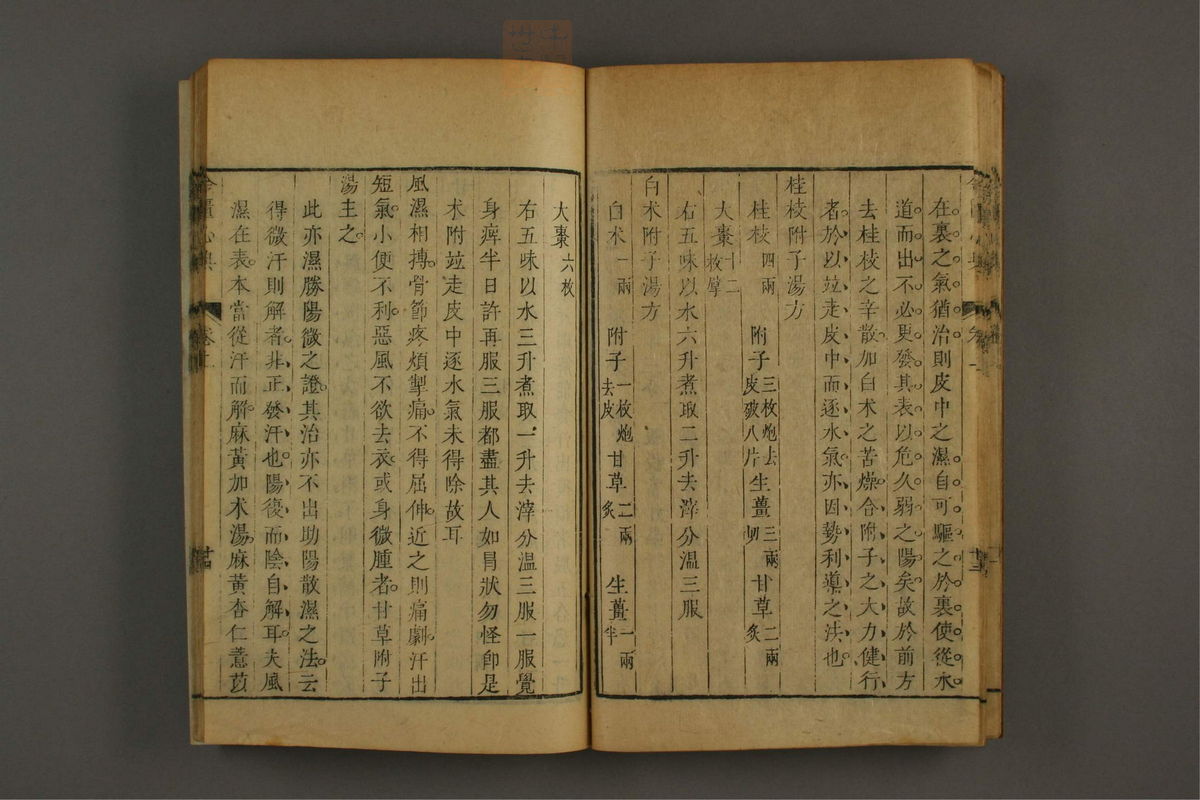 在裏之氣猶治則皮中之濕自可驅之於裏使從水
道而出不必更發其表以危久弱之陽矣故於前方
去桂枝之辛散加白术之苦燥合附子之大力健行
者於以竝走皮中而逐水氣亦因勢利導之法也
桂枝附子湯方
桂枝四兩 附子三枚炮去皮破八片 生薑三兩切 甘草二兩炙
大棗十二枚擘
右五味以水六升煮取二升去滓分溫三服
白术附子湯方
白术一兩 附子一枚炮去皮 甘草二兩炙 生薑一兩半
大棗六枚
右五味以水三升煮取一升去滓分溫三服一服覺
身痺半日許再服三服都盡其人如冒狀勿怪卽是
术附竝走皮中逐水氣未得除故耳
風濕相搏骨節疼煩掣痛不得屈伸近之則痛劇汗出
短氣小便不利惡風不欲去衣或身微腫者甘草附子
湯主之
此亦濕勝陽微之證其治亦不出助陽散濕之法云
得微汗則解者非正發汗也陽復而陰自解耳夫風
濕在表本當從汗而解麻黃加术湯麻黃杏仁薏苡
卷上
十四